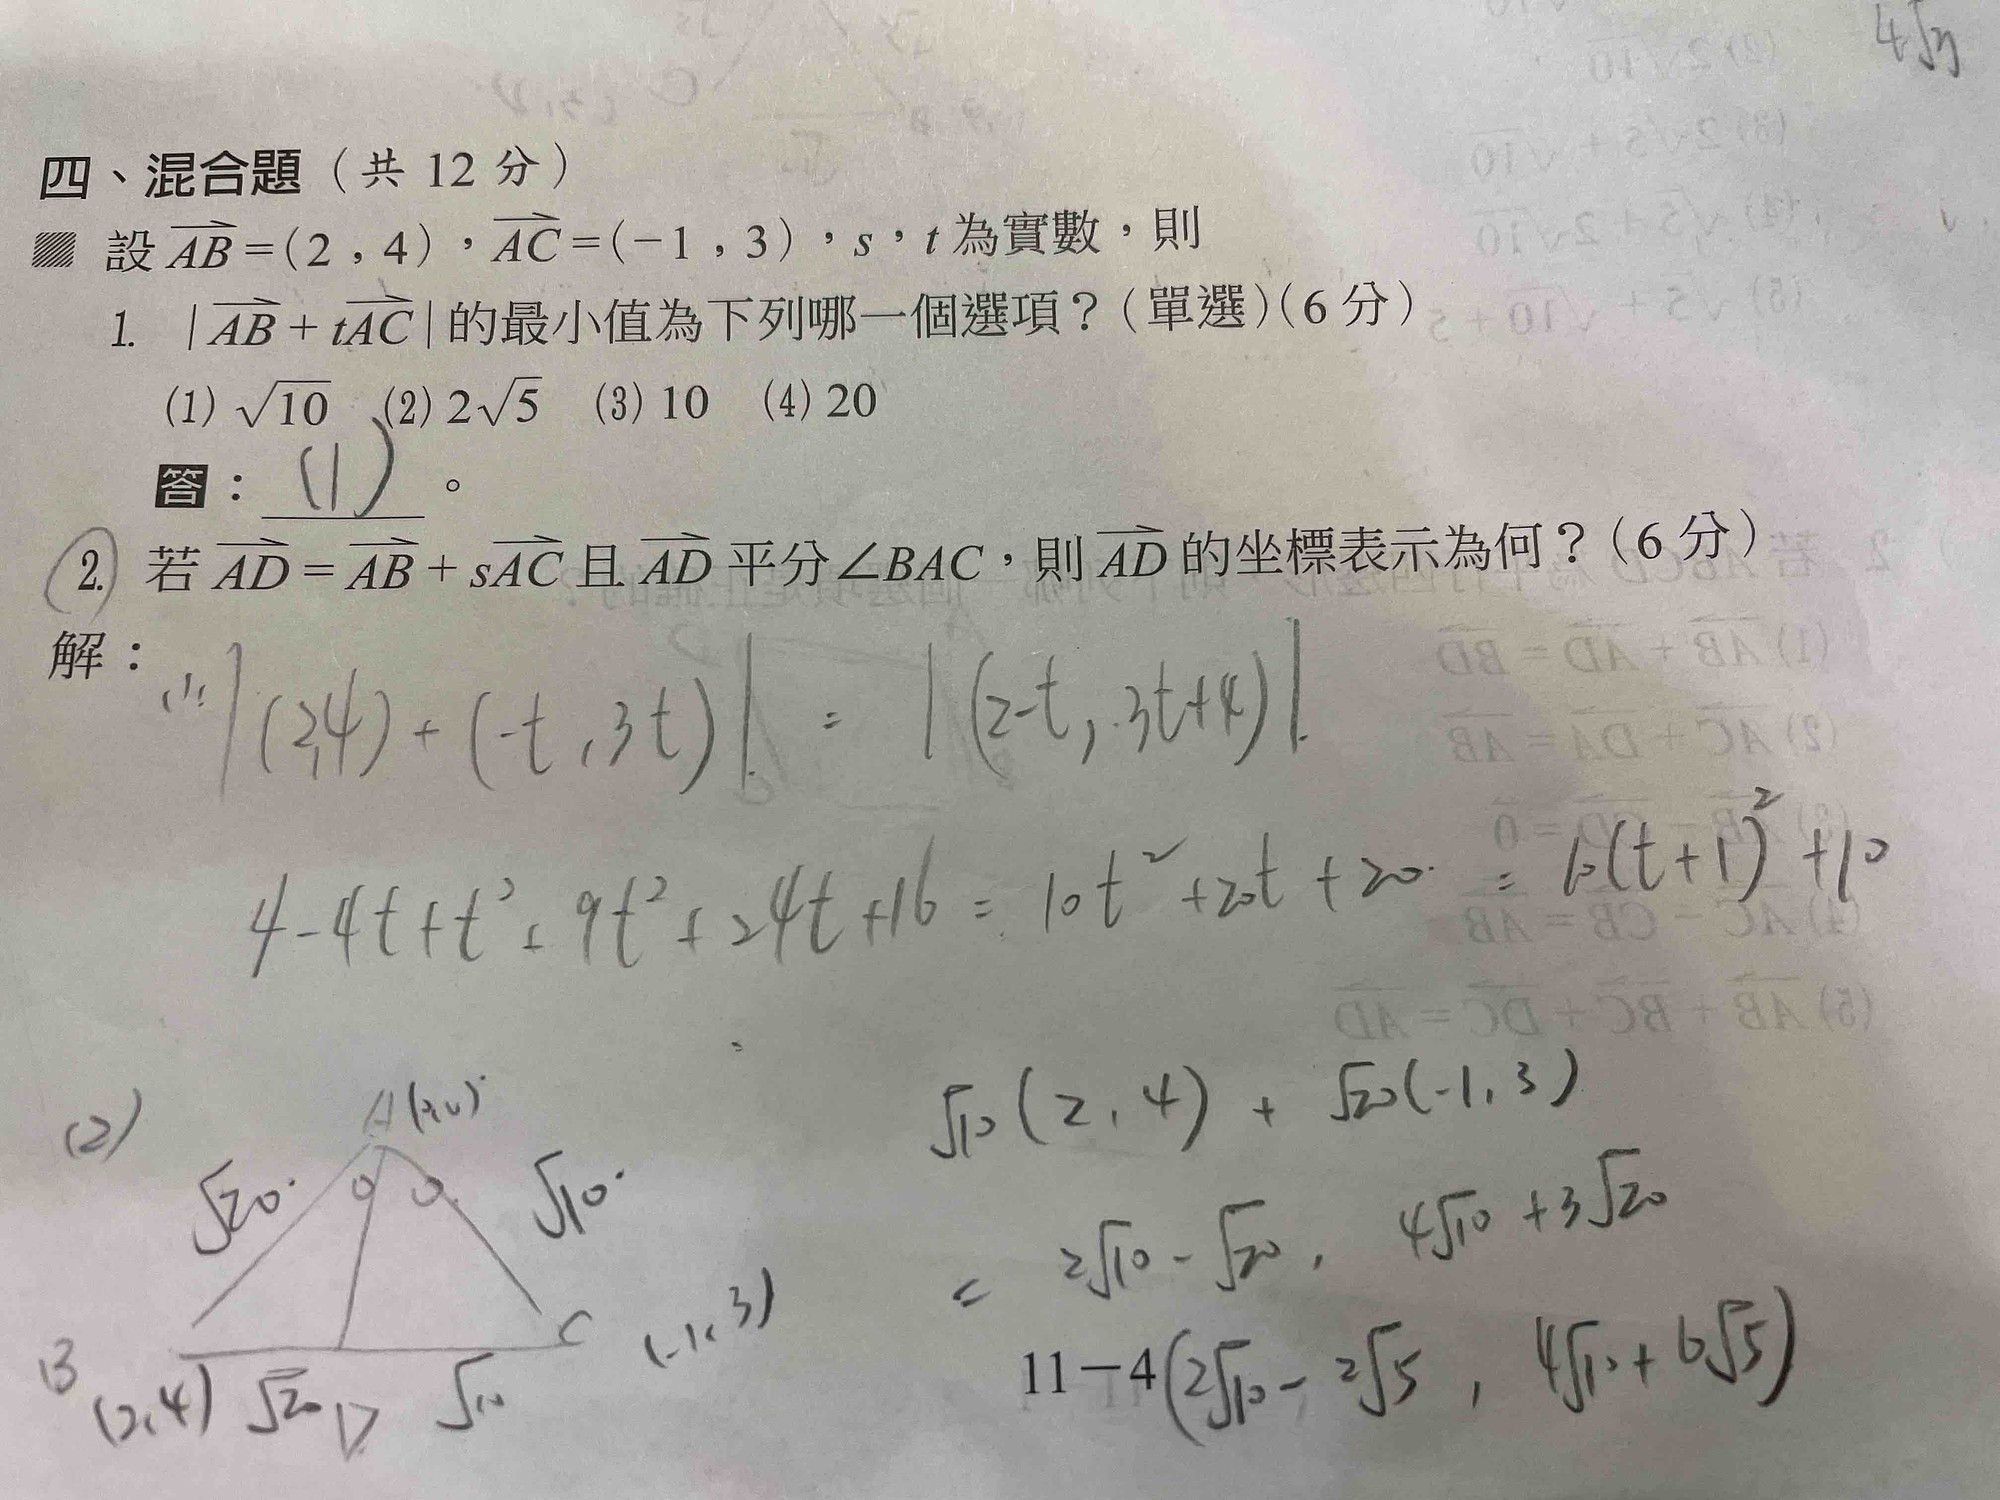 4√
四、混合題（共 12 分）
設 AB=(2 , 4)，AC=(−1 , 3)，s，t 為實數，則
1. |AB + tAC| 的最小值為下列哪一個選項？(單選)(6 分)
(1) √10 (2) 2√5 (3) 10 (4) 20
答：(1)。
2. 若 AD = AB + sAC 且 AD 平分∠BAC，則 AD 的坐標表示為何？(6 分)
解：
(1) |(2,4) + (-t, 3t)| = |(2-t, 3t+4)|
4-4t+t²+9t²+24t+16 = 10t²+20t+20 = 10(t+1)²+10
(2) A
√20 √10
B (2,4) √20 D √10 C (-1,3)
√10(2,4) + √20(-1,3)
= 2√10-√20, 4√10+3√20
11−4 (2√10-2√5, 4√10+6√5)